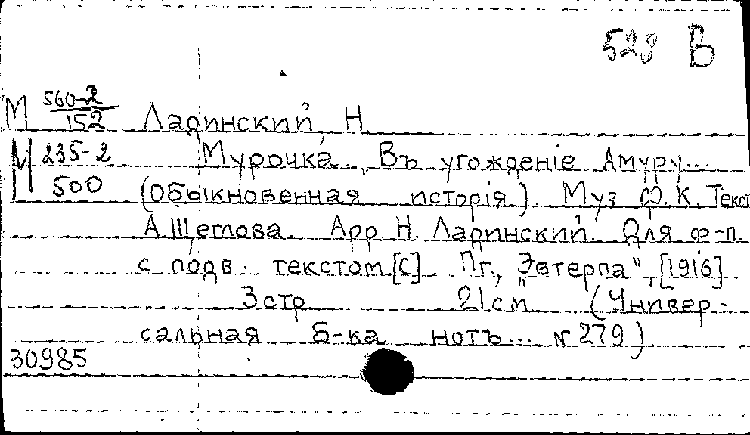 528 В
М 560-2/152 Ларинский, Н
М 235-2/500 Мурочка. Въ угожденіе Амуру...
(Обыкновенная исторія). Муз Ф. К. Текст
А. Щеглова. Арр Н. Ларинский. Для ф-п.
с подв. текстом. [С] Пг., "Эвтерпа", [1916]
3 стр 21 см (Универ-
сальная б-ка нотъ... № 279)
30985